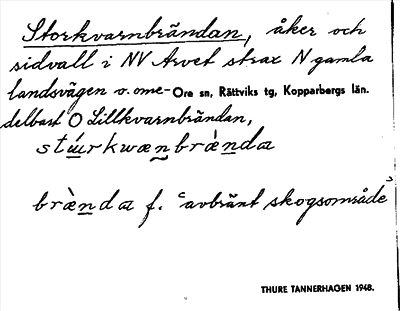 Storkvarnbrändan, åker och
sidvall i NV Arvet strax N gamla
landsvägen o. ome- Ore sn, Rättviks tg, Kopparbergs län.
delbart O Lillkvarnbrändan,
stúrkwænbrànda
brànda f. "avbränt skogsområde"
THURE TANNERHAGEN 1948.